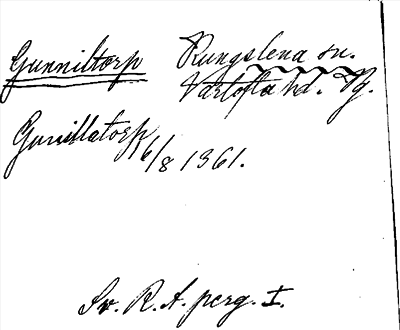 Gunniltorp Rungslena sn.
Vartofta hd. Vg.
Gunillatorp 16/8 1361.
Sv. R. A. perg. I.